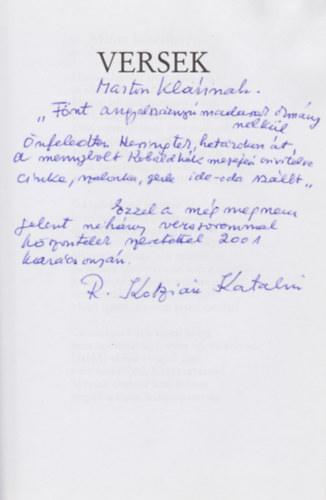 VERSEK
Martin Klárinak.
"Fönt angyalszárnyú madarat kormány
nélkül
Önfeledten Messzenéz, határokon át,
A mennybolt kobaltkék mezején
cinke, szalonka, gerle ide-oda szállt"
Ezzel a még meg nem
jelent néhány verssorommal
köszöntelek szeretettel 2001
karácsonyán.
R. Kotzián Katalin